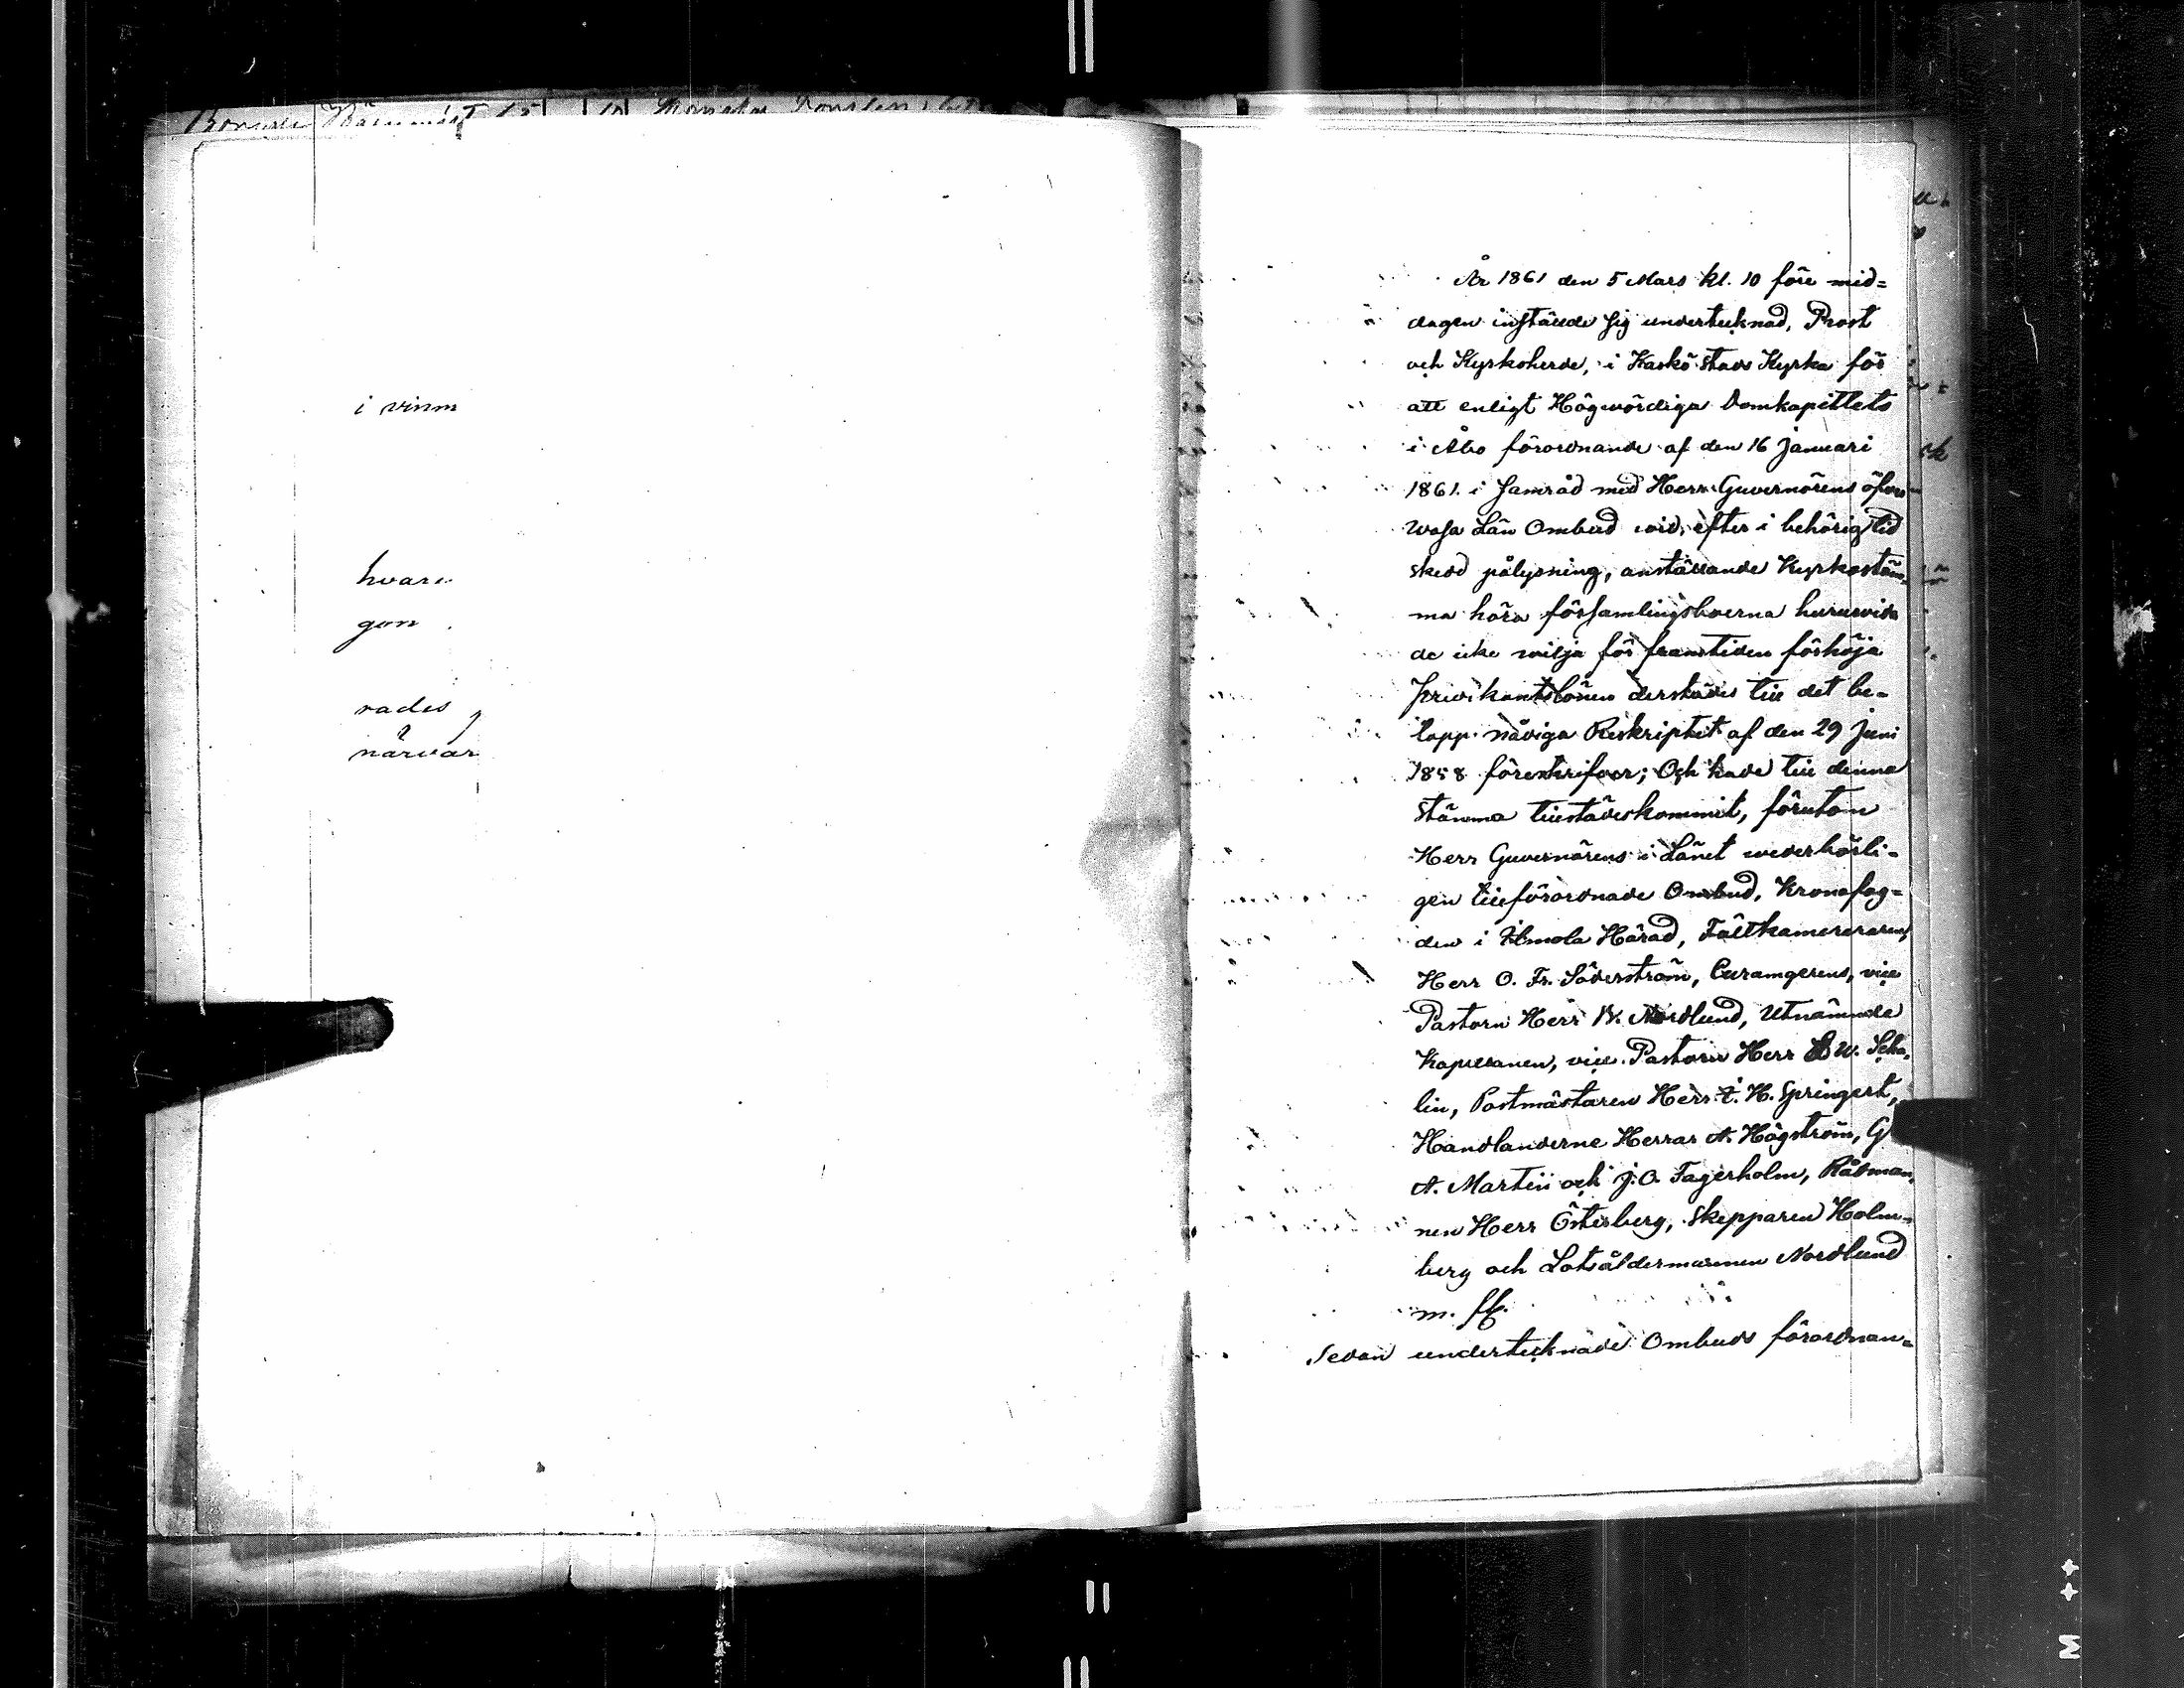 i vinm
hvare
gen
rades
närvar
År 1861 den 5 Mars kl. 10 före mid=
dagen inställde sig undertecknad, Prost
och Kyrkoherde, i Kaskö Stads Kyrka för
att enligt Högwördiga Domkapitlets
i Åbo förordnande af den 16 Januari
1861 i samråd med Herr Guvernörens öfver
Wasa Län Ombud wid, efter i behörig tid
skedd pålysning, anställande Kyrkostäm=
ma höra församlingsboerna huruvida
de icke wilja för framtiden förhöja
predikantslönen derstädes till det be=
lopp nådiga Reskriptet af den 29 Juni
1858 föreskrifver; Och hade till denna
Stämma tillstädeskommit, förutom
Herr Guvernörens i Länet wederbörli=
gen tillförordnade Ombud, Kronofog=
den i Ilmola Härad, Fältkamereraren,
Herr O. Fr. Söderström, vice
Pastorn Herr Nordlund, Utnämnde
Kapellanen, vice Pastorn Herr W. Scha=
lin, Postmästaren Herr H. Springert,
Handlanderne Herrar A. Högström, G
A. Martin och J. O. Fagerholm, Rådman=
nen Herr Österberg, Skepparen Holm=
berg och Lotsåldermannen Nordlund
m. fl.
Sedan undertecknade Ombuds förordnan=